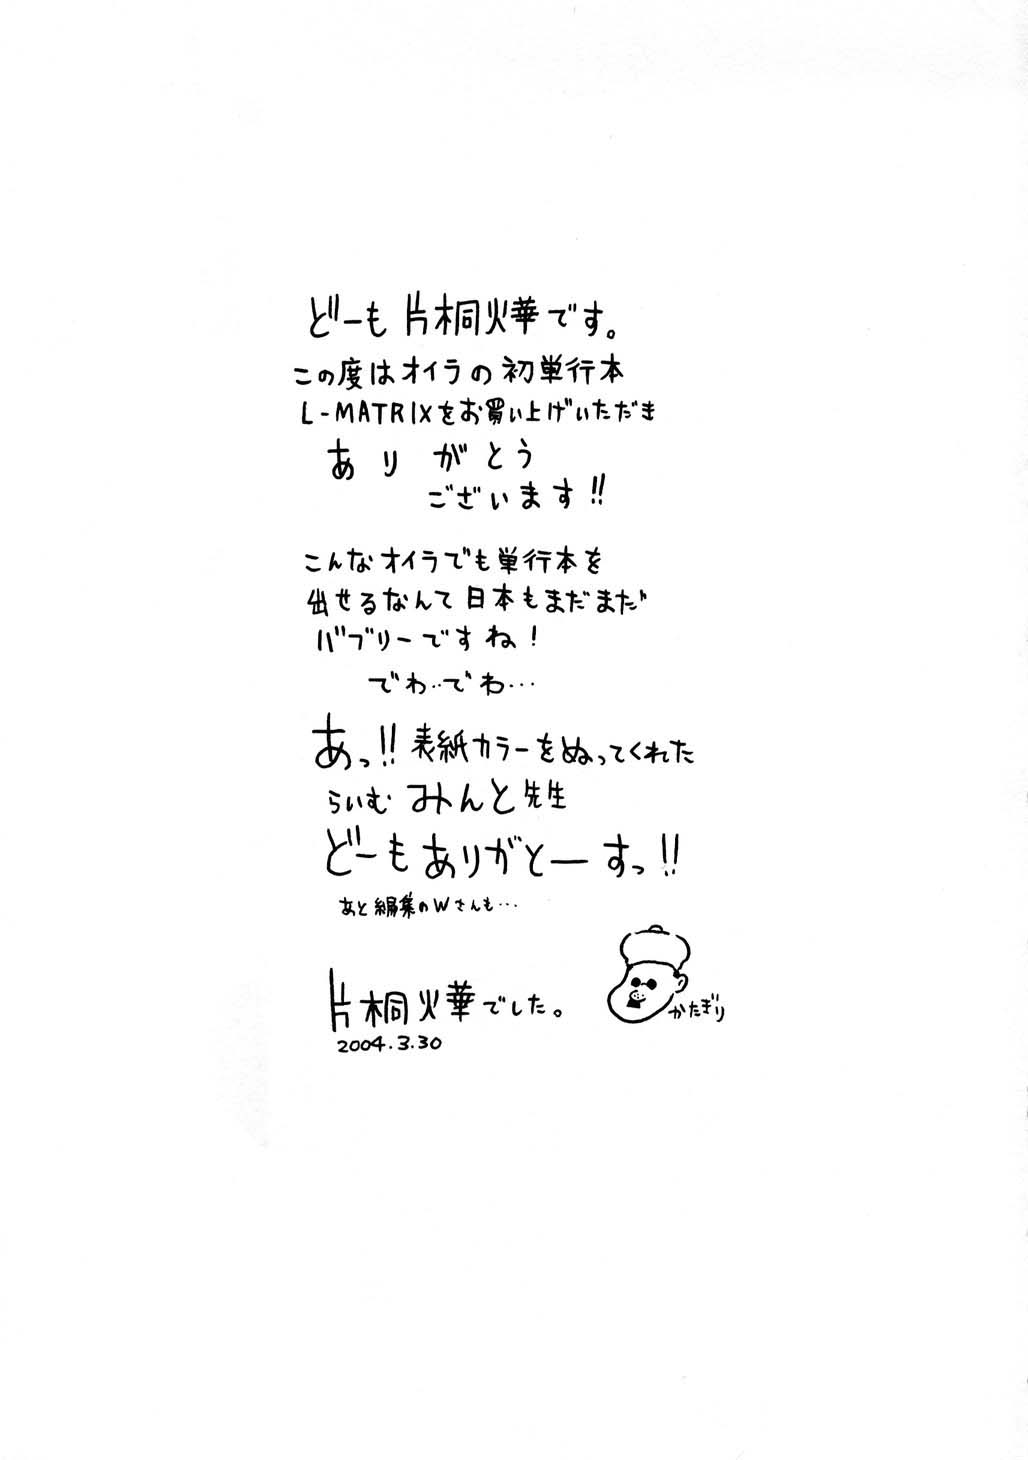 どーも 片桐火華です。
この度はオイラの初単行本
L-MATRIXをお買い上げいただき
ありがとう
ございます!!
こんなオイラでも単行本を
出せるなんて日本もまだまだ
バブリーですね!
でわ‥でわ…
あっ!!表紙カラーをぬってくれた
らいむみんと先生
どーもありがとーすっ!!
あと編集のWさんも…
片桐火華でした。
かたぎり
2004.3.30